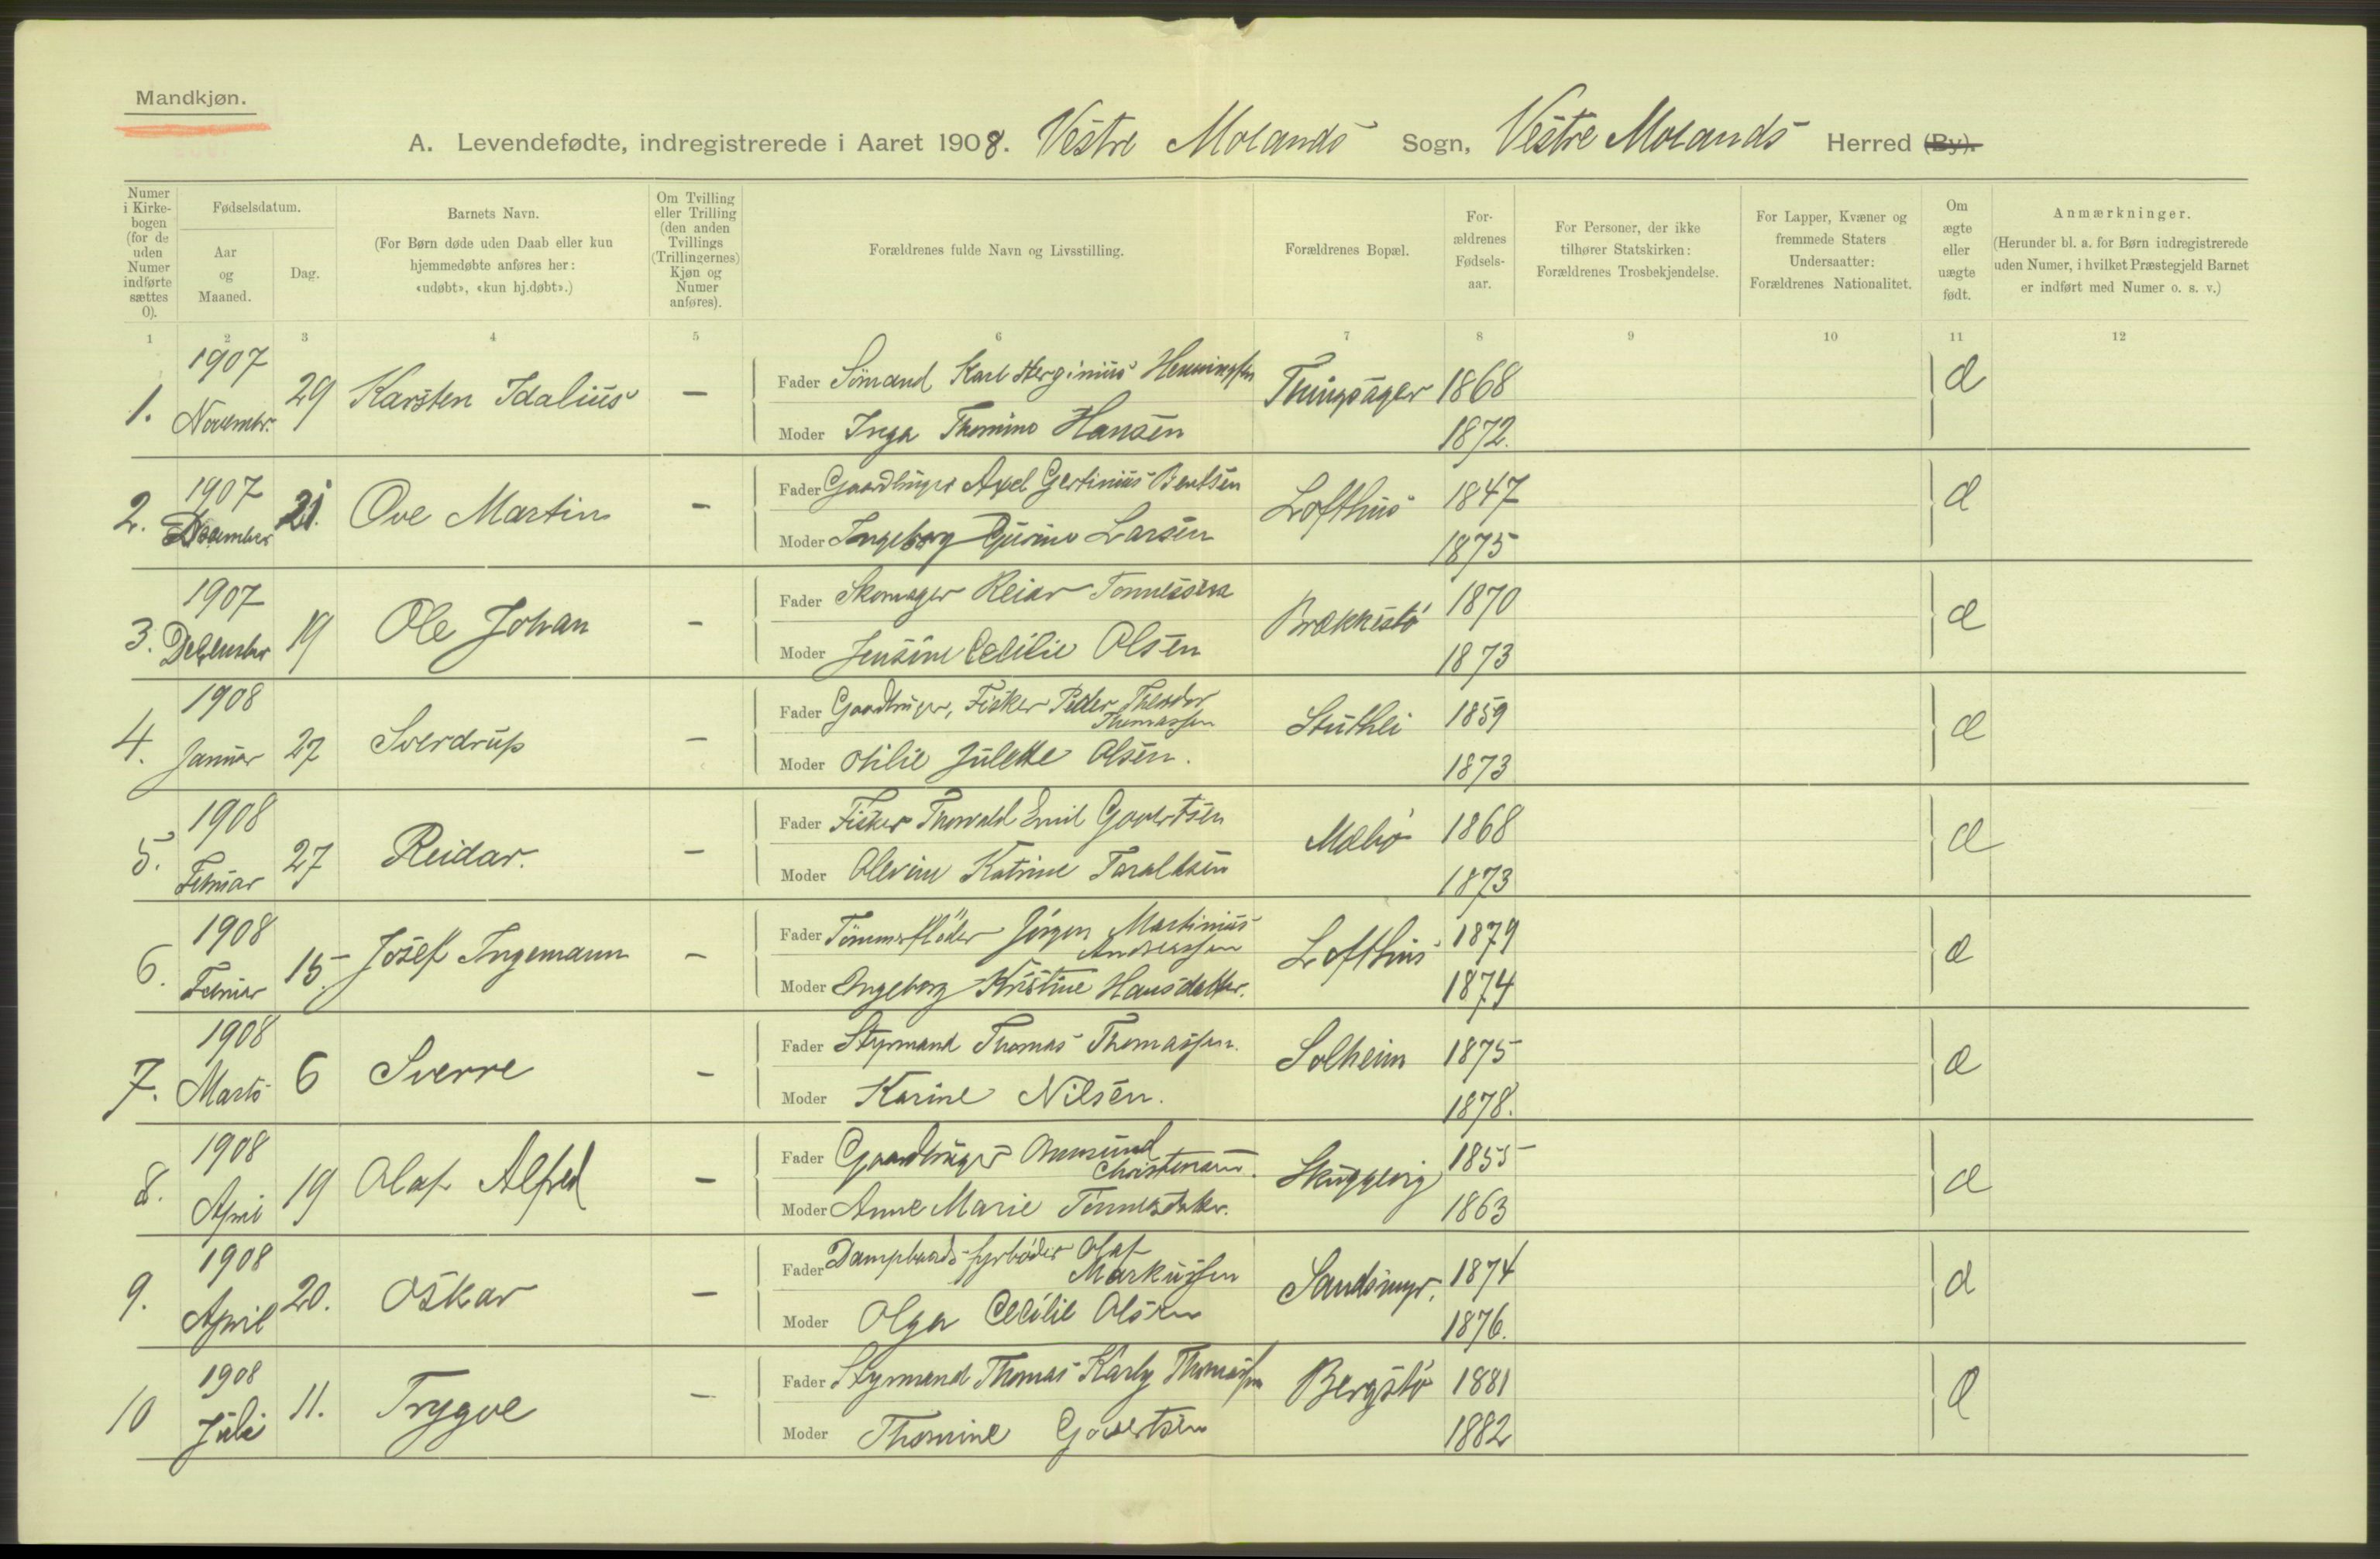 Mandkjøn.
A. Levendefødte, indregistrerede i Aaret 1908. Vestre Molands Sogn, Vestre Molands Herred (By).
Numer i Kirke-bogen (for de uden Numer indførte sættes 0).
Fødselsdatum.
Aar og Maaned.
Dag.
Barnets Navn.
(For Børn døde uden Daab eller kun hjemmedøbte anføres her: «udøbt», «kun hj.døbt».)
Om Tvilling eller Trilling (den anden Tvillings (Trillingernes) Kjøn og Numer anføres).
Forældrenes fulde Navn og Livsstilling.
Forældrenes Bopæl.
For-ældrenes Fødsels-aar.
For Personer, der ikke tilhører Statskirken: Forældrenes Trosbekjendelse.
For Lapper, Kvæner og fremmede Staters Undersaatter: Forældrenes Nationalitet.
Om ægte eller uægte født.
Anmærkninger.
(Herunder bl. a. for Børn indregistrerede uden Numer, i hvilket Præstegjeld Barnet er indført med Numer o. s. v.)
1 2 3 4 5 6 7 8 9 10 11 12
1. 1907 Novembr. 29 Karsten Idalius - Fader Sömand Karl Henningsen 1868 æ
Moder Inga Thomine Hansen 1872.
2. 1907 December 21. Ove Martin - Fader Gaardbruger Axel Gertinius Bentsen Lofthus 1847 æ
Moder Ingeborg Larsen 1875
3. 1907 December 19 Ole Johan - Fader Skomager Reiar Tønnessen Brækkestø 1870 æ
Moder Jensine Cecilie Olsen 1873
4. 1908 Januar 27 Sverdrup - Fader Gaardbruger, Fisker Peder Theodor Thomassen 1859 æ
Moder Otilie Julette Olsen. 1873
5. 1908 Februar 27 Reidar. - Fader Fisker Thorvald Emil Govertsen 1868 æ
Moder Olevine Katrine Taraldsen 1873
6. 1908 Februar 15 Josef Ingemann - Fader Jörgen Martinius Andreassen Lofthus 1879 æ
Moder Ingeborg Kristine Hansdatter. 1874
7. 1908 Marts 6 Sverre - Fader Styrmand Thomas Thomassen. Solheim 1875 æ
Moder Karine Nilsen. 1878.
8. 1908 April 19 Olaf Alfred - Fader Gaardbruger Christensen. 1855 æ
Moder Anne Marie Tønnesdatter. 1863
9. 1908 April 20. Oskar - Fader Dampbaads-fyrbøder Olaf Markussen Sandsmyr. 1874 æ
Moder Olga Cecilie Olsen 1876.
10 1908 Juli 11. Trygve - Fader Styrmand Thomas Thomassen Bergstø 1881 æ
Moder Thomine Govertsen 1882